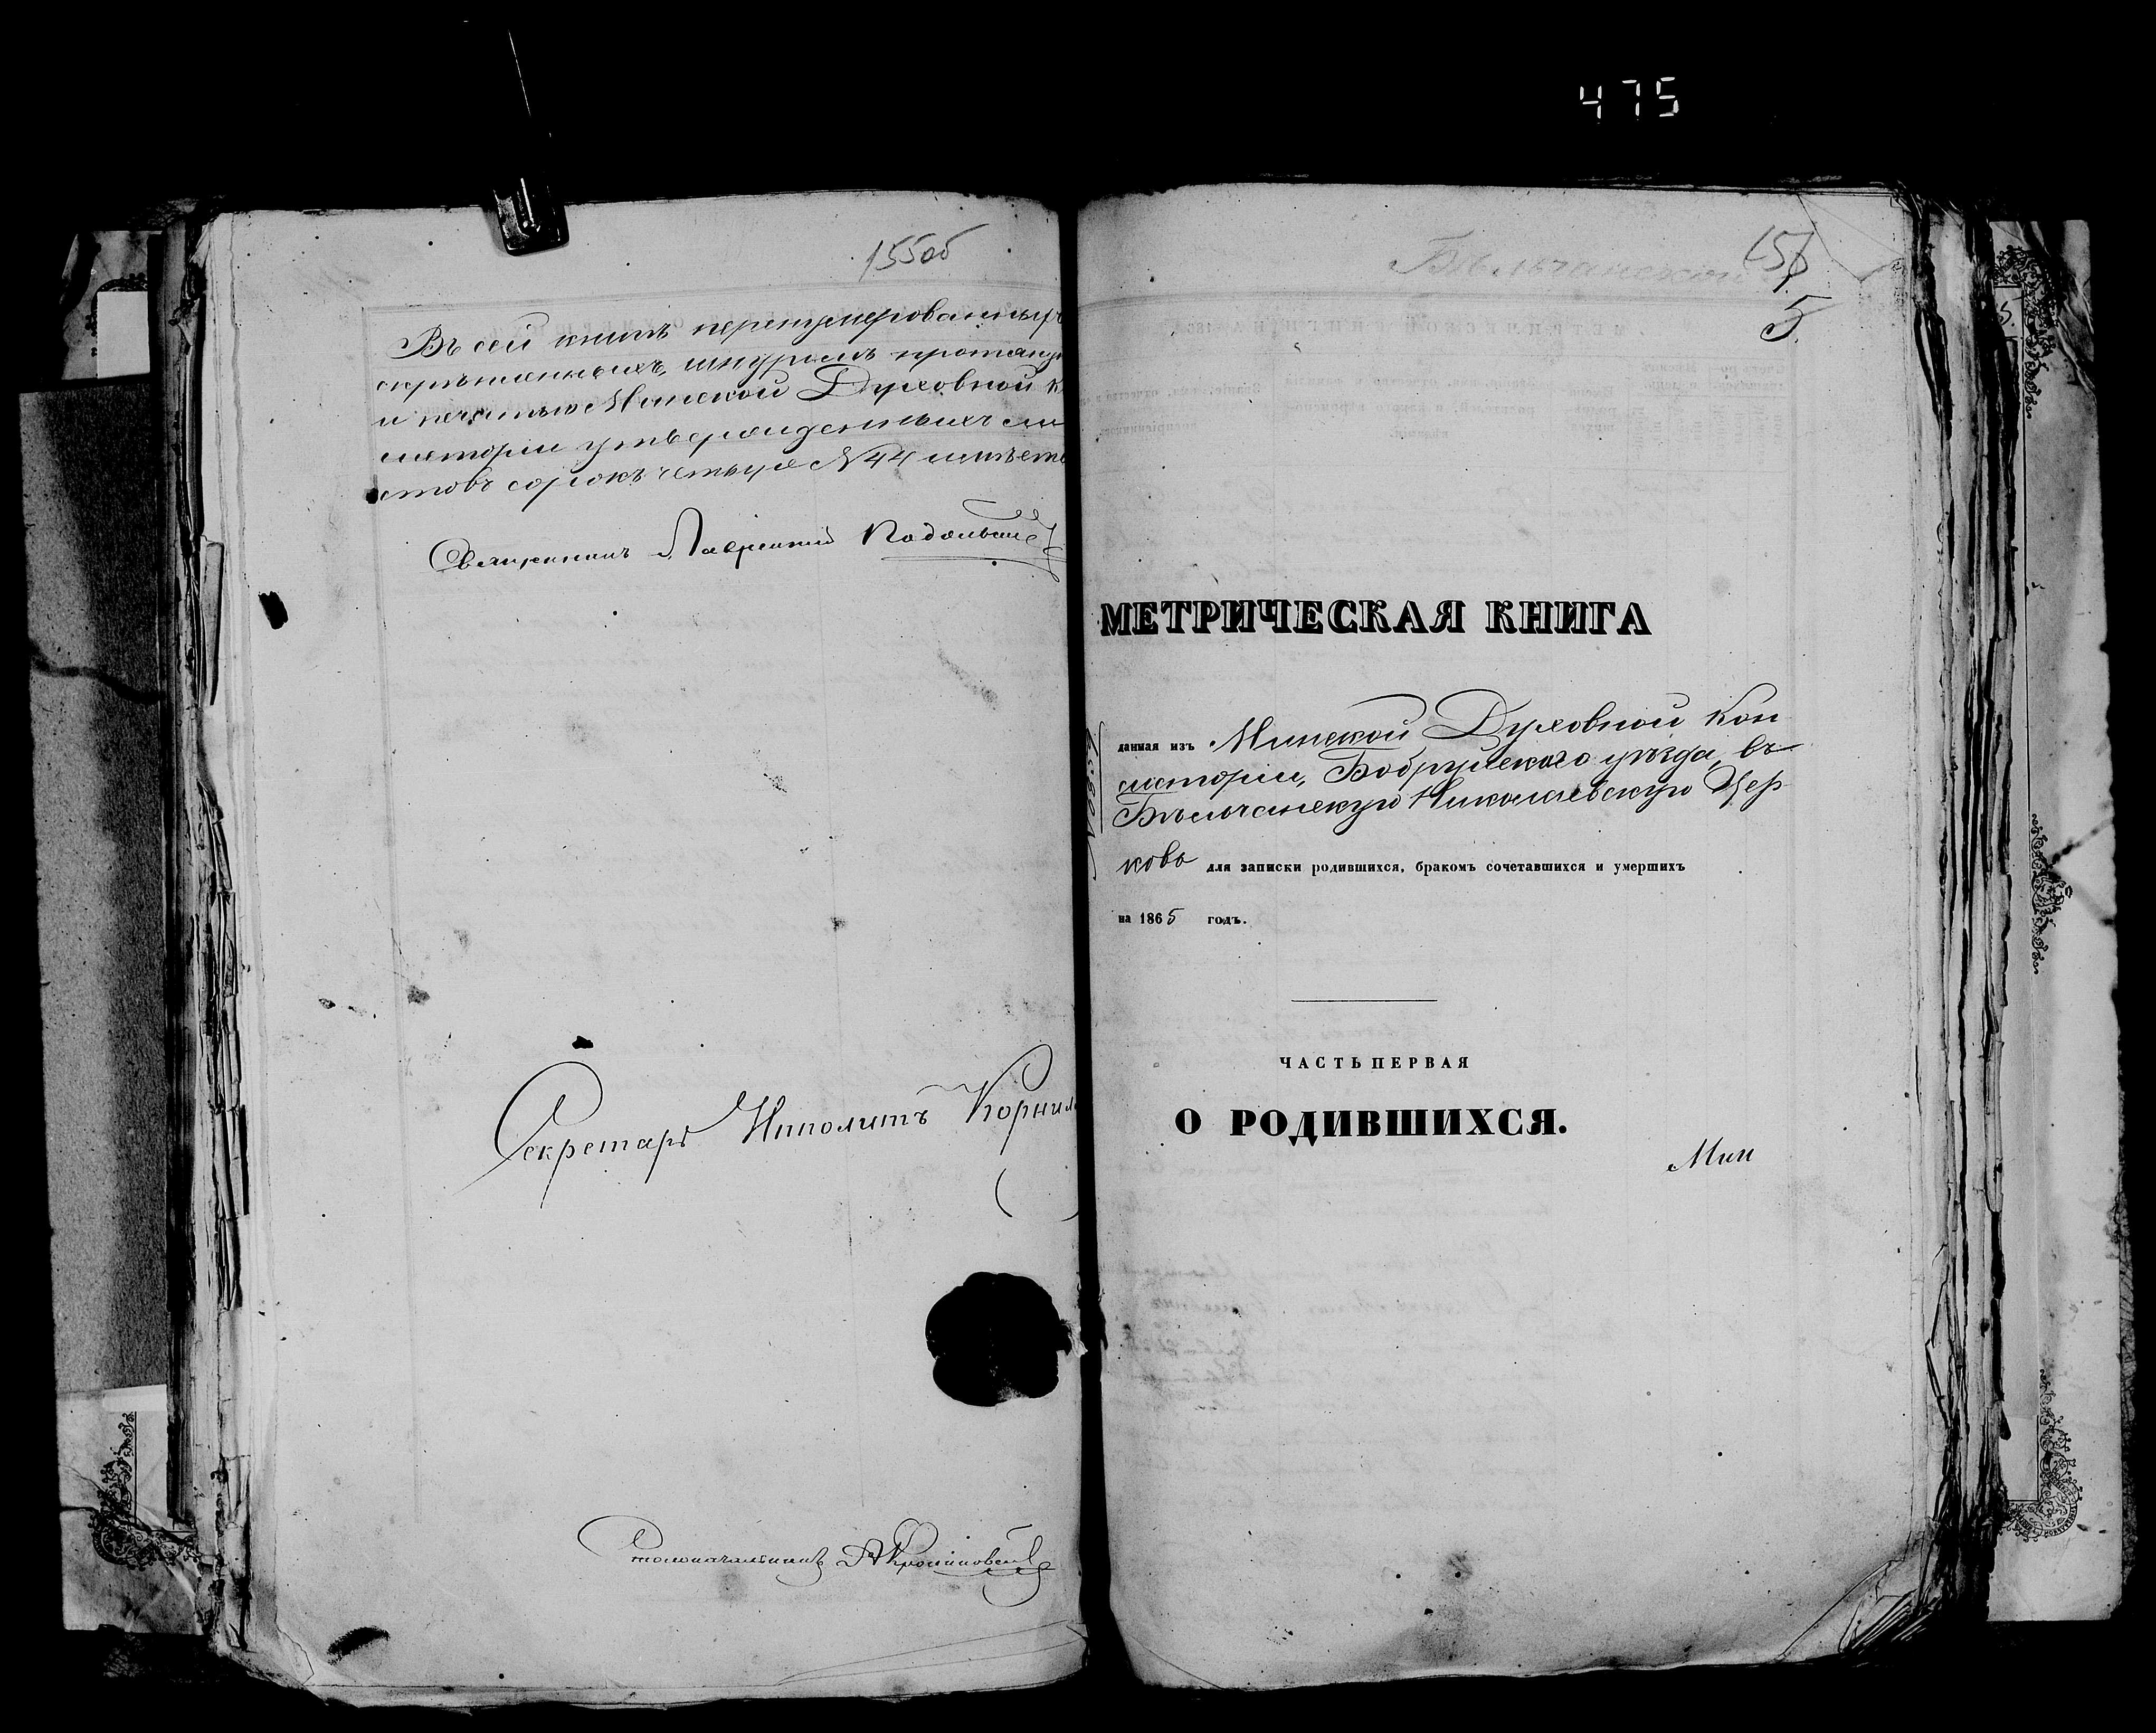 475
155об
Въ сей книгѣ перенумерованныхъ
скрѣпленныхъ, шнуромъ протяну
и печатью Минской Духовной К
систоріи утвержденныхъ ли
стовъ сорокъ четыре №44 имѣетс
Священникъ Подольскій
Секретарь Ипполитъ Корнил
Столоначальникъ
Бѣльчанской
156
5.
МЕТРИЧЕСКАЯ КНИГА
данная изъ Минской Духовной Кон
систоріи, Бобруйскаго уѣзда, въ
Бѣльчанскую Николаевскую Цер
ковь для записки родившихся, бракомъ сочетавшихся и умершихъ
на 1865 годъ.
ЧАСТЬ ПЕРВАЯ
О РОДИВШИХСЯ.
Мин